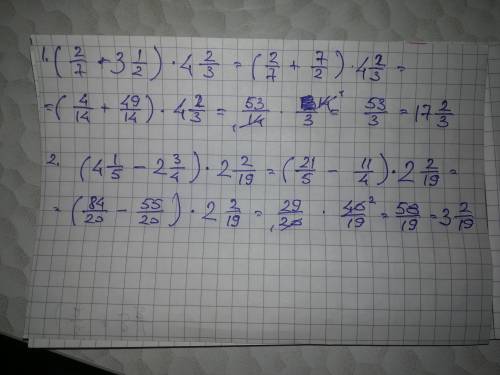 1. (2/7 + 3 1/2) · 4 2/3 = (2/7 + 7/2) · 4 2/3 =
= (4/14 + 49/14) · 4 2/3 = 53/₁14 · 14¹/3 = 53/3 = 17 2/3
2. (4 1/5 - 2 3/4) · 2 2/19 = (21/5 - 11/4) · 2 2/19 =
= (84/20 - 55/20) · 2 2/19 = 29/₁20 · 40²/19 = 58/19 = 3 2/19